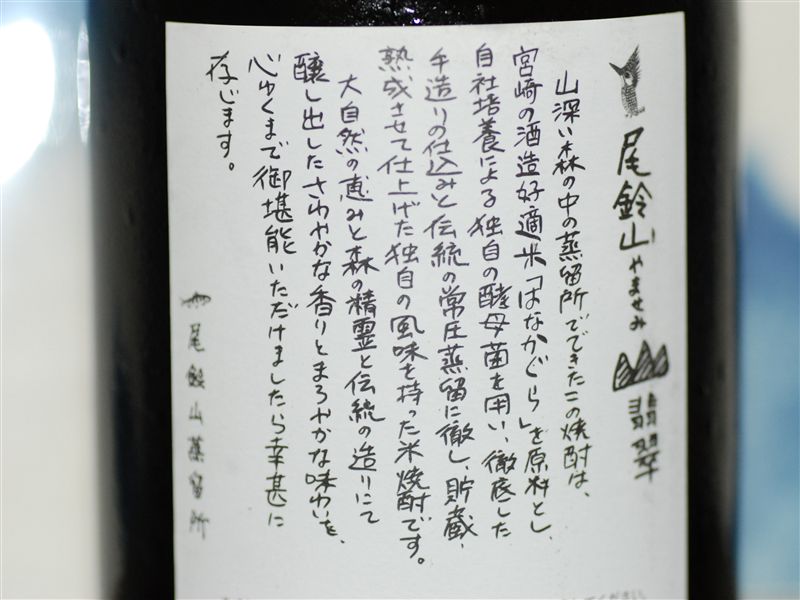 尾鈴山 やませみ 翡翠
山深い森の中の蒸留所でできたこの焼酎は、
宮崎の酒造好適米「はなかぐら」を原料とし、
自社培養による独自の酵母菌を用い、徹底した
手造りの仕込みと伝統の常圧蒸留に徹し、貯蔵、
熟成させて仕上げた独自の風味を持った米焼酎です。
大自然の恵みと森の精霊と伝統の造りにて
醸し出したさわやかな香りとまろやかな味わいを、
心ゆくまで御堪能いただけましたら幸甚に
存じます。
尾鈴山蒸留所